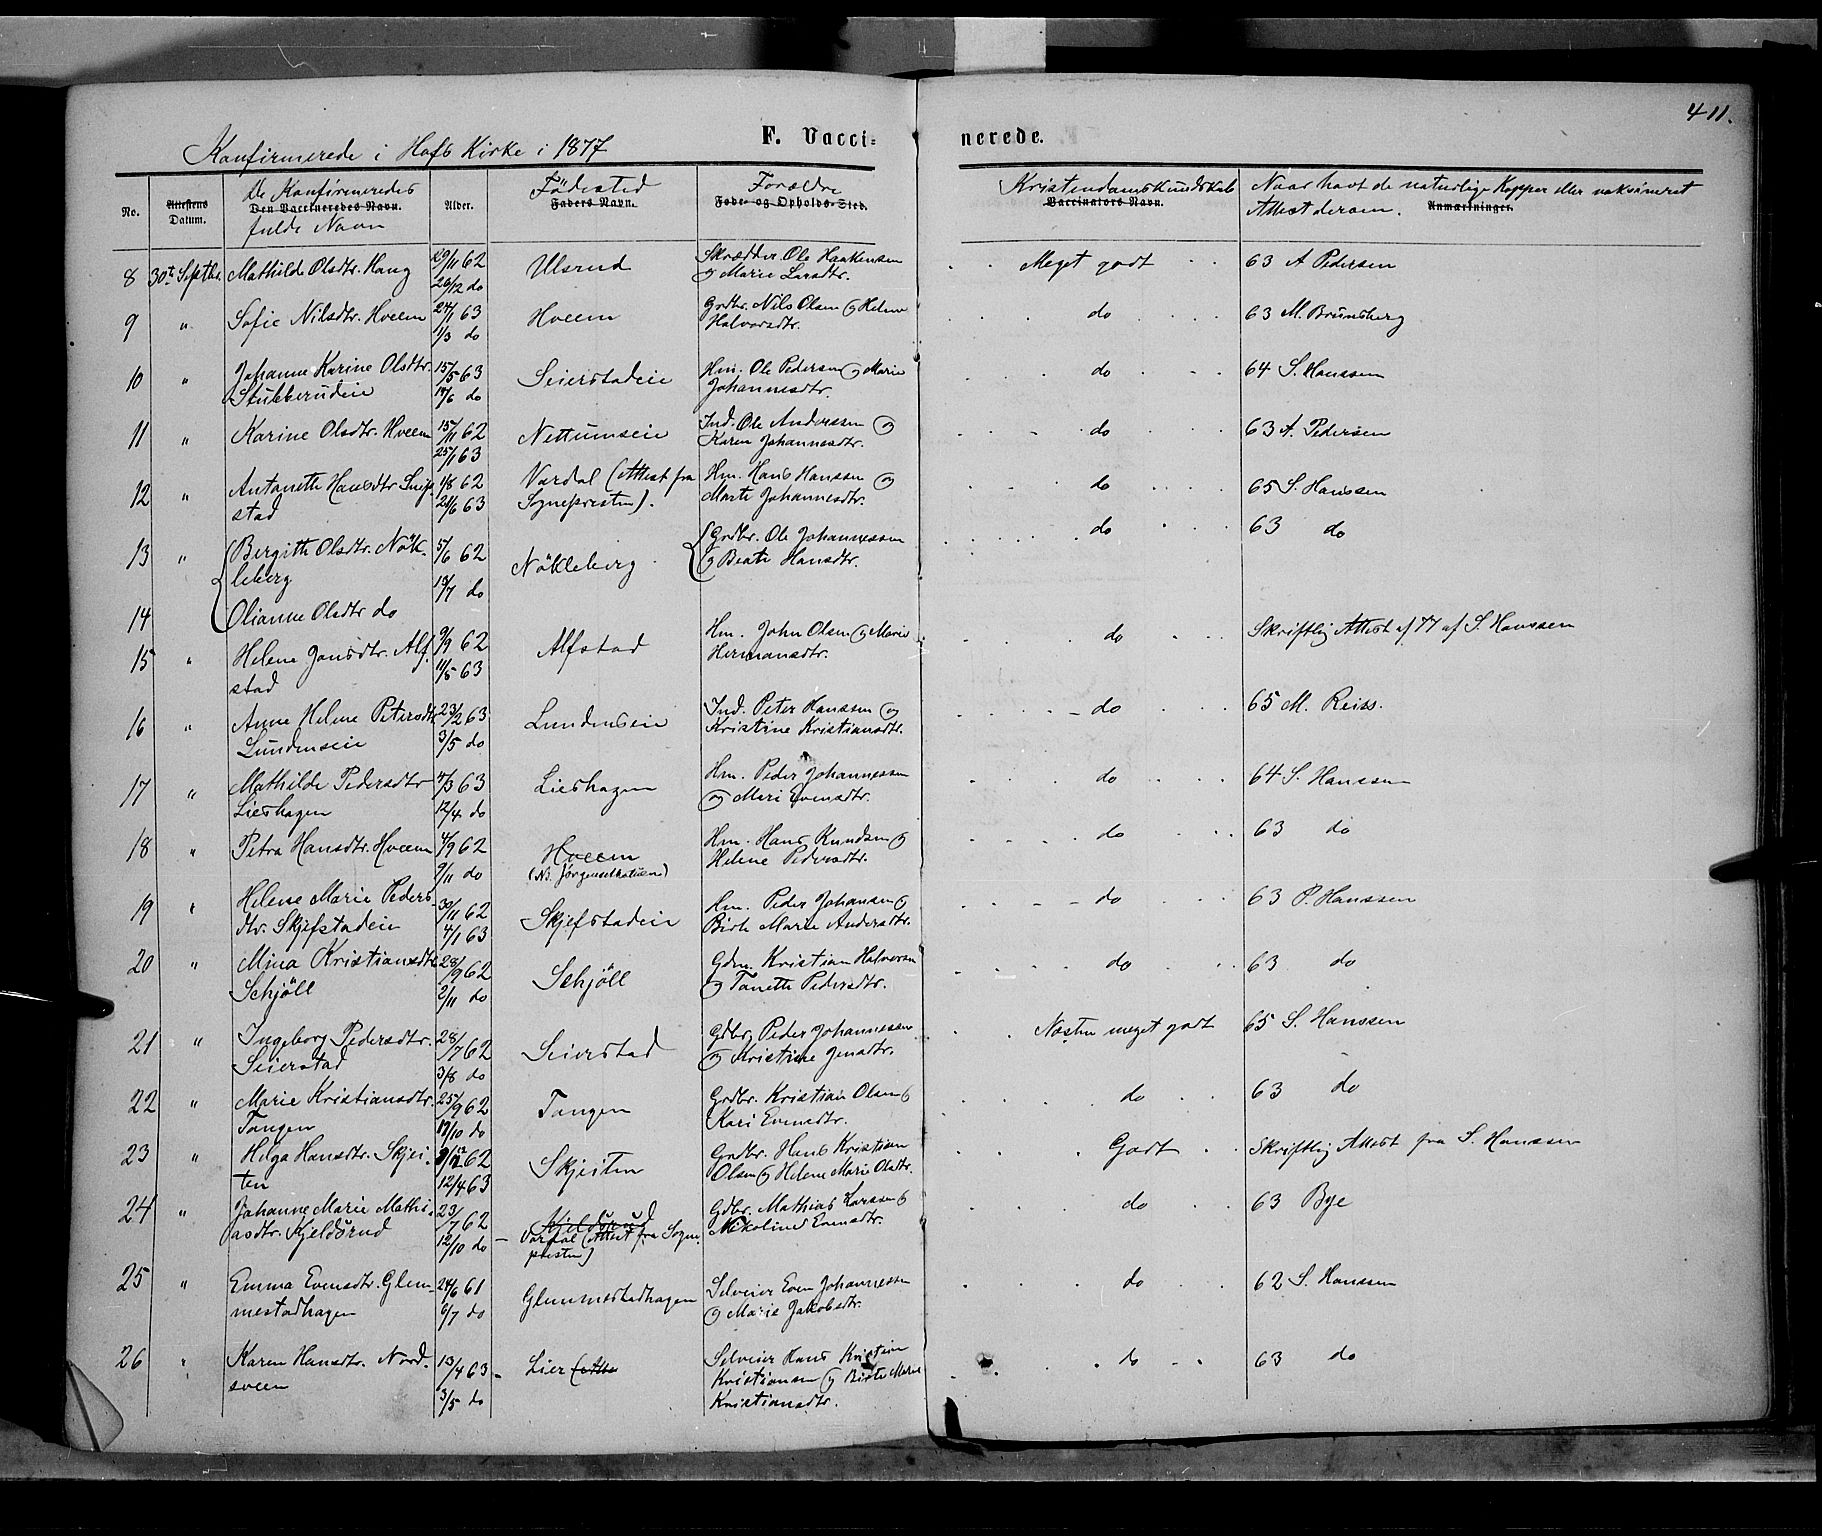 411.
Konfirmerede i Hofs Kirke i 1877
F. Vacci- nerede.
No.
Attestens Datum.
De Konfirmeredes fulde Navn
Den Vaccineredes Navn.
Alder.
Födested
Faders Navn.
Forældre
Føde- og Opholds-Sted.
Kristendomskundskab
Vaccinators Navn.
Naar havt de naturlige Kopper eller vaksineret
Attest derom. Anmærkninger.
8 30te Septbr. Mathilde Olsdtr. Haug 29/11 62 Ulsrud Skrædder Ole Haakensen Meget godt 63 A Pedersen
26/12 do og Marie Larsdtr.
9 " Sofie Nilsdtr. Hveem 24/1 63 Hveem Grdbr. Nils Olsen og Helene do 63 M. Brunsberg
1/3 do Halvorsdtr.
10 " Johanne Karine Olsdtr. 15/5 63 Seierstadeie Hm. Ole Pedersen og Marie do 64 S. Hanssen
Stubberudeie 14/6 do Johannesdtr.
11 " Karine Olsdtr. Hveem 15/11 62 Nettumseie Ind. Ole Anderssen og do 63 A. Pedersen
25/1 63 Karen Johannesdtr.
12 " Antonette Hansdtr Snip- 4/8 62 Vardal (Attest fra Hm. Hans Hanssen og do 65 S. Hanssen
stad 21/6 63 Sognepresten). Marte Johannesdtr.
13 " Bergitte Olsdtr. Nök- 5/6 62 Nökleberg Grdbr. Ole Johannessen do 63 do
leberg 19/7 do og Beate Hansdtr.
14 Olianne Olsdtr do
15 " Helene Jonsdtr. Alf- 9/9 62 Alfstad Hm. John Olsen og Marie do Skriftlig Attest af 77 af S. Hanssen
stad 11/5 63 Hermansdtr.
16 " Anne Helene Petersdtr 23/2 63 Lundenseie Ind. Peter Hanssen og do 65 M. Reiss.
Lundenseie 3/5 do Kristine Kristiansdtr.
17 " Mathilde Pedersdtr 4/3 63 Lieshagen Hm. Peder Johannessen do 64 S. Hanssen
Lieshagen 12/4 do og Mari Evensdtr.
18 " Petra Hansdtr. Hveem 4/9 62 Hveem Hm. Hans Knudsen og do 63 do
9/11 do (N. Jørgenselhatuen) Helene Pedersdtr.
19 " Helene Marie Peders- 30/11 62 Skjefstadeie Hm. Peder Johansen og do 63 P. Hanssen
dtr. Skjefstadeie 4/1 63 Birte Marie Andersdtr.
20 " Mina Kristiansdtr 28/9 62 Schjöll Gdm. Kristian Halvorsen do 63 do
Schjöll 2/11 do og Tanette Pedersdtr.
21 " Ingeborg Pedersdtr. 28/7 62 Seierstad Gdbr. Peder Johannessen Næsten meget godt 65 S. Hanssen
Seierstad 3/8 do og Kristine Jensdtr.
22 " Marie Kristiansdtr. 25/9 62 Tangen Grdbr. Kristian Olsen og do 63 do
Tangen 19/10 do Kari Evensdtr.
23 " Helga Hansdtr. Skjei- 62 Skjeiten Grdbr. Hans Kristian Godt Skriftlig Attest fra S. Hanssen
ten 12/4 63 Olsen og Helene Marie Olsdtr.
24 " Johanne Marie Mathi- 23/7 62 Kjeldsrud Gdbr. Mathias Larssen og do 63 Bye
asdtr. Kjeldsrud 12/10 do – Vardal (Attest fra Sogne- Nikoline Evensdtr.
presten)
25 " Emma Evensdtr. Glem- 24/6 61 Glemmestadhagen Selveier Even Johannessen do 62 S. Hanssen
mestadhagen 6/7 do og Marie Jakobsdtr.
26 " Karen Hansdtr. Nord- 13/4 63 – Lier (Atte Selveier Hans Kristian do 63 do
sveen 3/5 do Kristiansen og Birte Marie
Kristiansdtr.